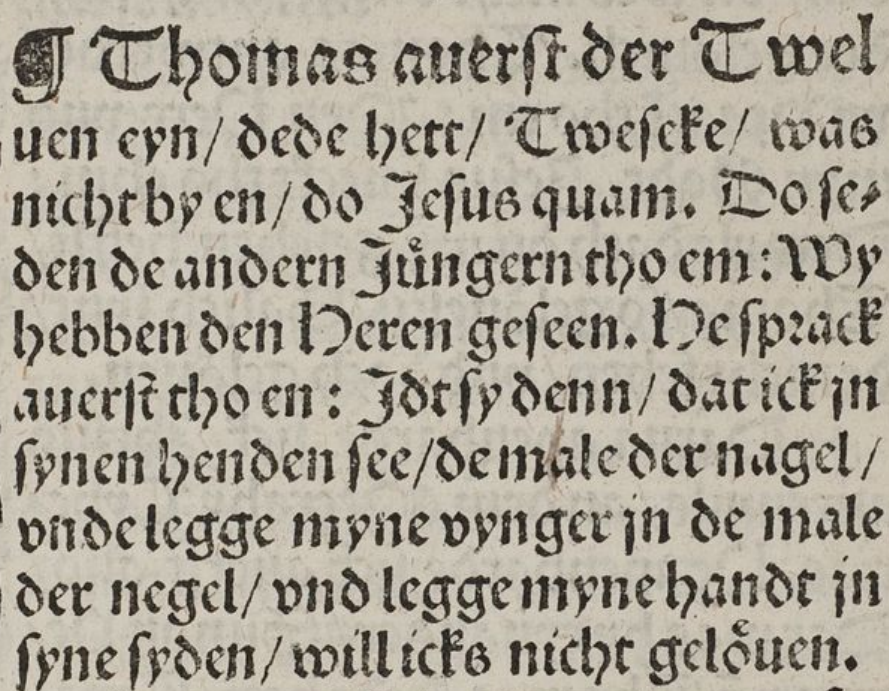 ¶ Thomas auerst der Twel
uen eyn/ dede hett/ Twescke/ was
nicht by en/ do Jesus quam. Do se⸗
den de andern Jůngern tho em: Wy
hebben den Heren geseen. He sprack
auerst tho en: Jdt sy denn/ dat ick jn
synen henden see/ de male der nagel/
vnde legge myne vynger jn de male
der negel/ vnd legge myne handt jn
syne syden/ will icks nicht gelöuen.